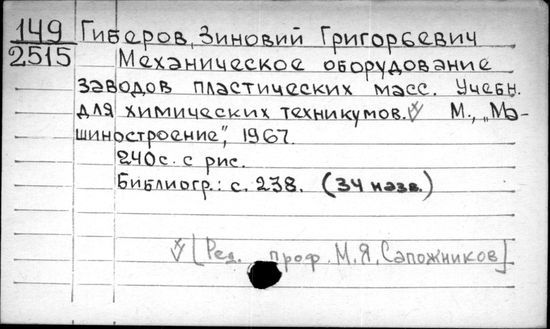 149 Гиберов, Зиновий Григорьевич
2515 Механическое оборудование
заводов пластических масс. Учебн.
для химических техникумов. М., „Ма-
шиностроение", 1967.
240с. с рис.
Библиогр.: с. 238. (34 назв.)
[Ред. проф. М.Я. Сапожников]